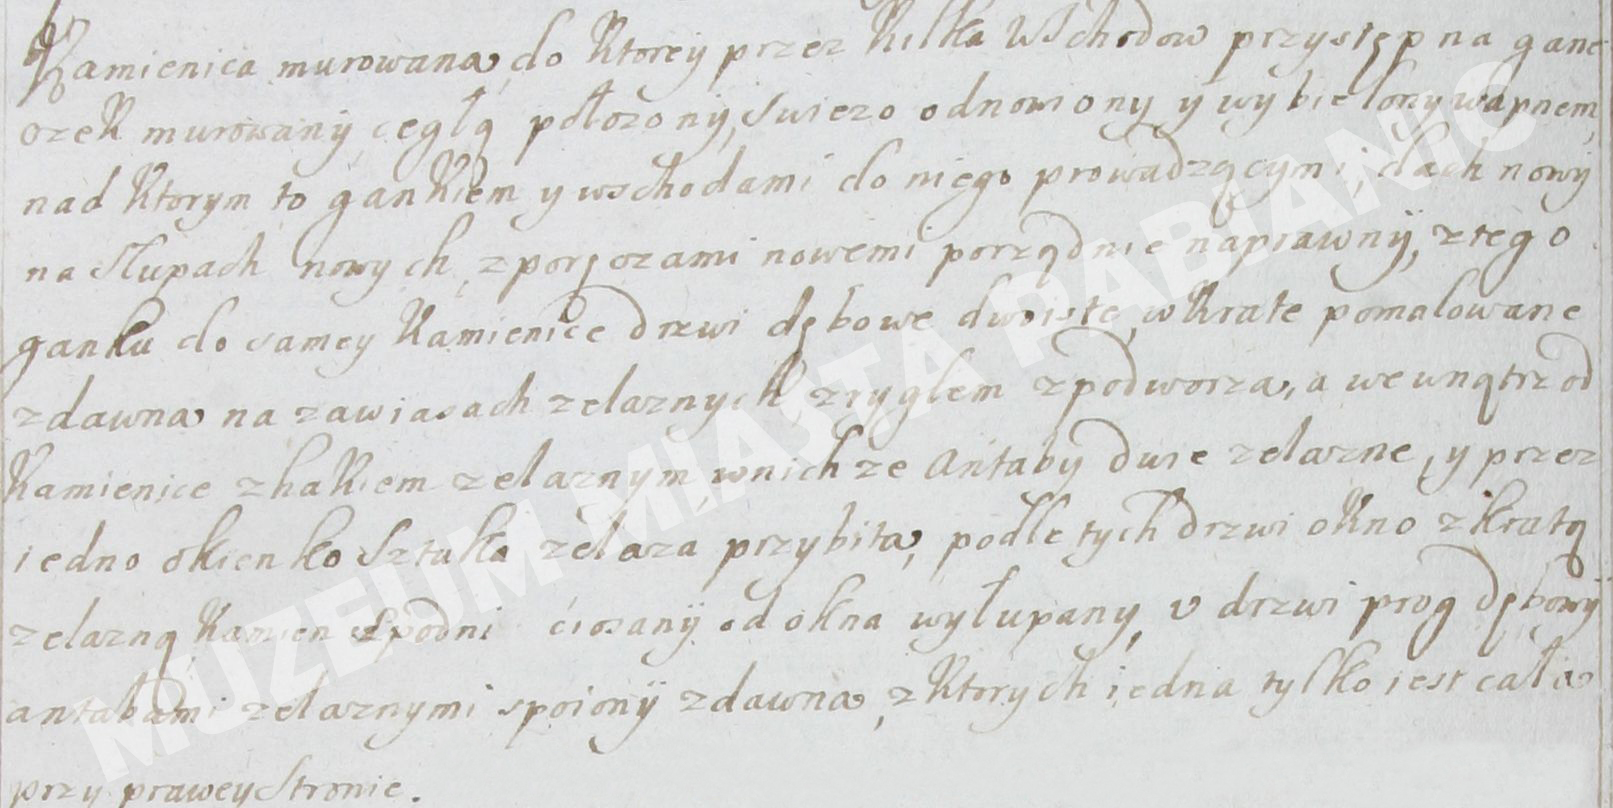 Kamienica murowana, do Ktorey przez Kilka Wschodow przystęp na gane
ozek murowany cegłą położony, swiezo odnowiony y wybielony wapnem,
nad Ktorym to gankiem y wschodami do niego prowadzącymi, dach nowy
na słupach nowych, z poręczami nowemi porządnie naprawny, z tego
ganku do samey Kamienice drzwi dębowe dwoiste, w Krate pomalowane
zdawna na zawiasach zelaznych z ryglem z podworza, a wewnątrz od
Kamienice z hakiem zelaznym, w nich ze Antaby dwie zelazne, y przez
iedno okienko sztuka zelaza przybita, podle tych drzwi okno z kratą
zelazną, Kamien spodni ciosany od okna wyłupany, v drzwi prog dębowy
antabami zelaznymi spoiony zdawna, z Ktorych iedna tylko iest cała
przy prawey stronie.
MUZEUM MIASTA PABIANIC